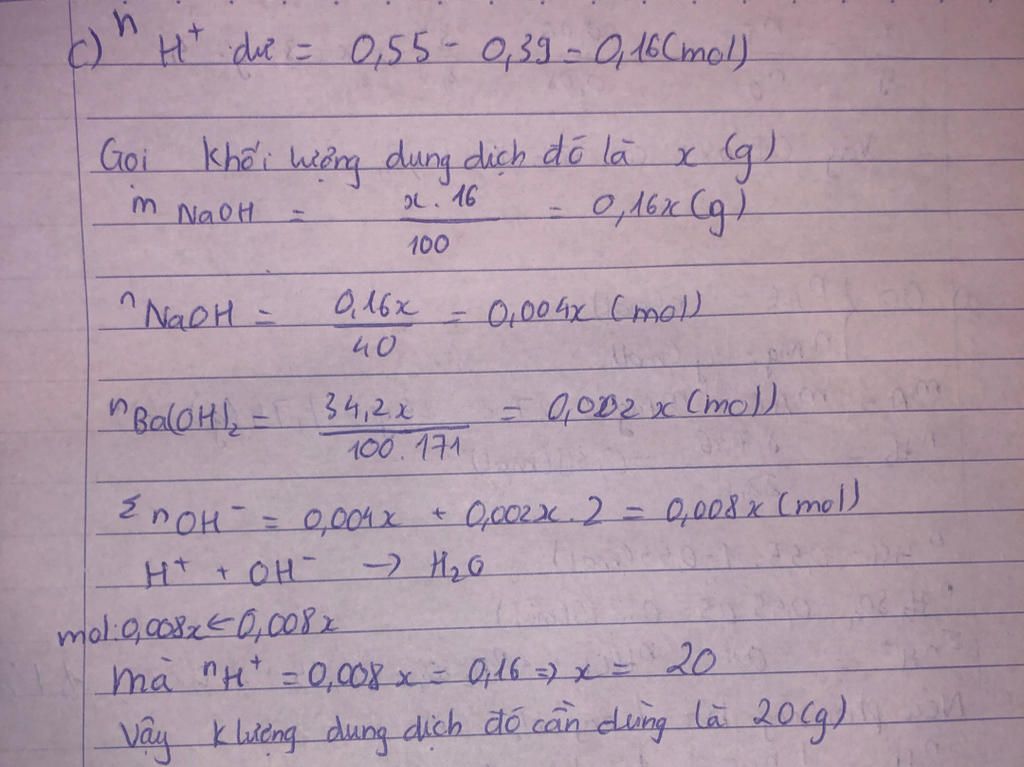 c) n H⁺ dư = 0,55 - 0,39 = 0,16(mol)
Gọi khối lượng dung dịch đó là x (g)
m NaOH = x . 16 / 100 = 0,16x(g)
n NaOH = 0,16x / 40 = 0,004x (mol)
n Ba(OH)₂ = 34,2x / 100.171 = 0,002x(mol)
Σ n OH⁻ = 0,004x + 0,002x . 2 = 0,008x(mol)
H⁺ + OH⁻ → H₂O
mol: 0,008x ← 0,008x
mà n H⁺ = 0,008x = 0,16 ⇒ x = 20
Vậy k lượng dung dịch đó cần dùng là 20(g)